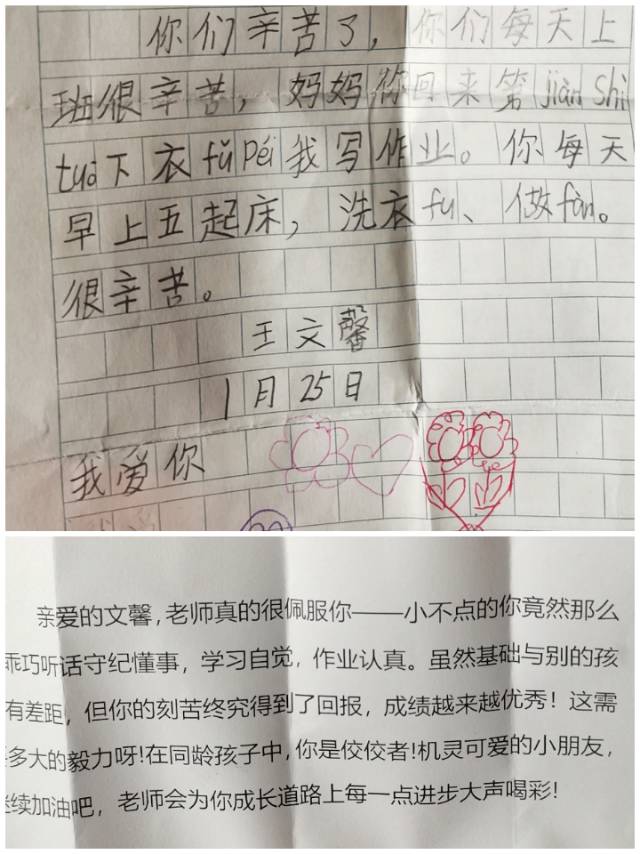 你们辛苦了，你们每天上
班很辛苦，妈妈你回来第jiàn shì
tuō下衣fú péi我写作业。你每天
早上五起床，洗衣fu、做fàn。
很辛苦。
王文馨
1月25日
我爱你
亲爱的文馨，老师真的很佩服你——小不点的你竟然那么
乖巧听话守纪懂事，学习自觉，作业认真。虽然基础与别的孩
有差距，但你的刻苦终究得到了回报，成绩越来越优秀！这需
多大的毅力呀！在同龄孩子中，你是佼佼者！机灵可爱的小朋友，
继续加油吧，老师会为你成长道路上每一点进步大声喝彩！